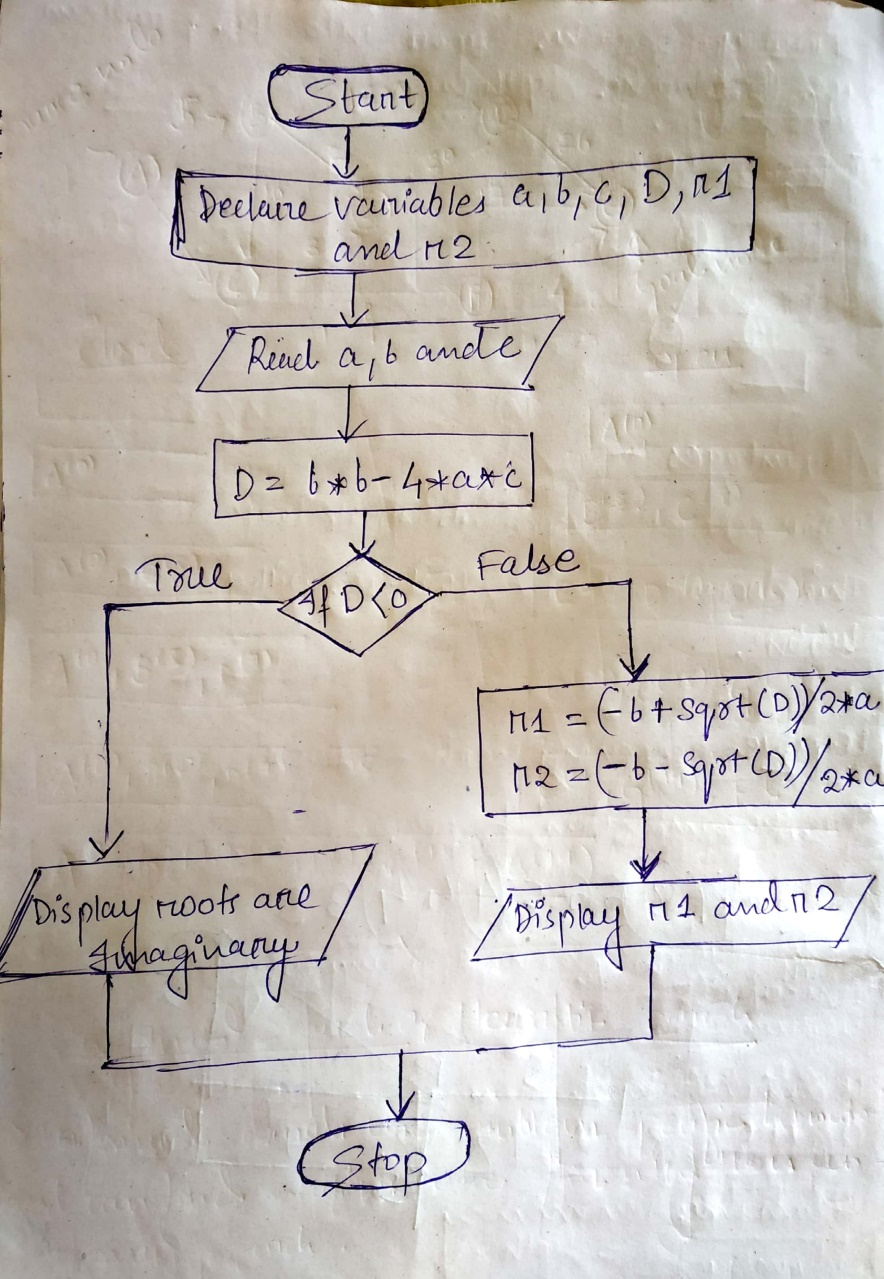 Start
Declare variables a, b, c, D, r1
and r2
Read a, b and c
D = b*b - 4*a*c
True
False
If D<0
r1 = (-b + sqrt(D))/2*a
r2 = (-b - sqrt(D))/2*a
Display roots are
Imaginary
Display r1 and r2
Stop